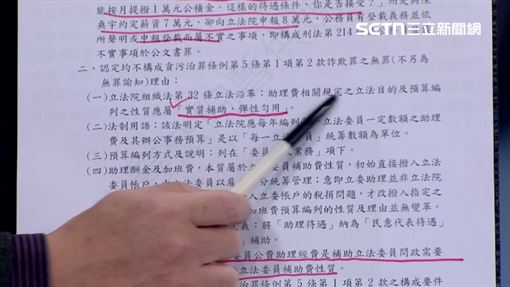 SETN 三立新聞網
能按月提撥1萬元公積金,這樣的待遇條件,你是否接受?」而是與陳
奐宇約定薪資7萬元,卻向立法院申報8萬元,公務員有登載義務並依
所聲明或申報登載而屬不實之事項,即構成刑法第214
不實事項於公文書罪。
二、認定均不構成貪污治罪條例第5條第1項第2款詐欺罪之無罪(不另為
無罪諭知)理由:
(一)立法院組織法第32條立法沿革:助理費相關規定之立法目的及預算編
列之性質應屬「實質補助、彈性勾用」。
(二)法制用語:該法明定「立法院應每年編列
委員一定數額之助理
費及其辦公事務預算」是以「每一立
統籌數額為單位。
(三)預算編列方式及說明:列在「委員
業務」項下。
(四)助理酬金及加班費,本質屬於
委員補助費性質,初始直接撥入立法
委員帳戶,由立法委員以雇
分統籌管理;意即立委助理並非立法院
入立委帳戶的稅捐問題,才改撥入指定之
加班費預算編列的性質及理由並無變革。
義:將「助理待遇」納為「民意代表待遇」
」補助。
委員公費助理經費是補助立法委員問政需要
立法委員補助費性質。
治罪條例第5條第1項第2款之構成要件